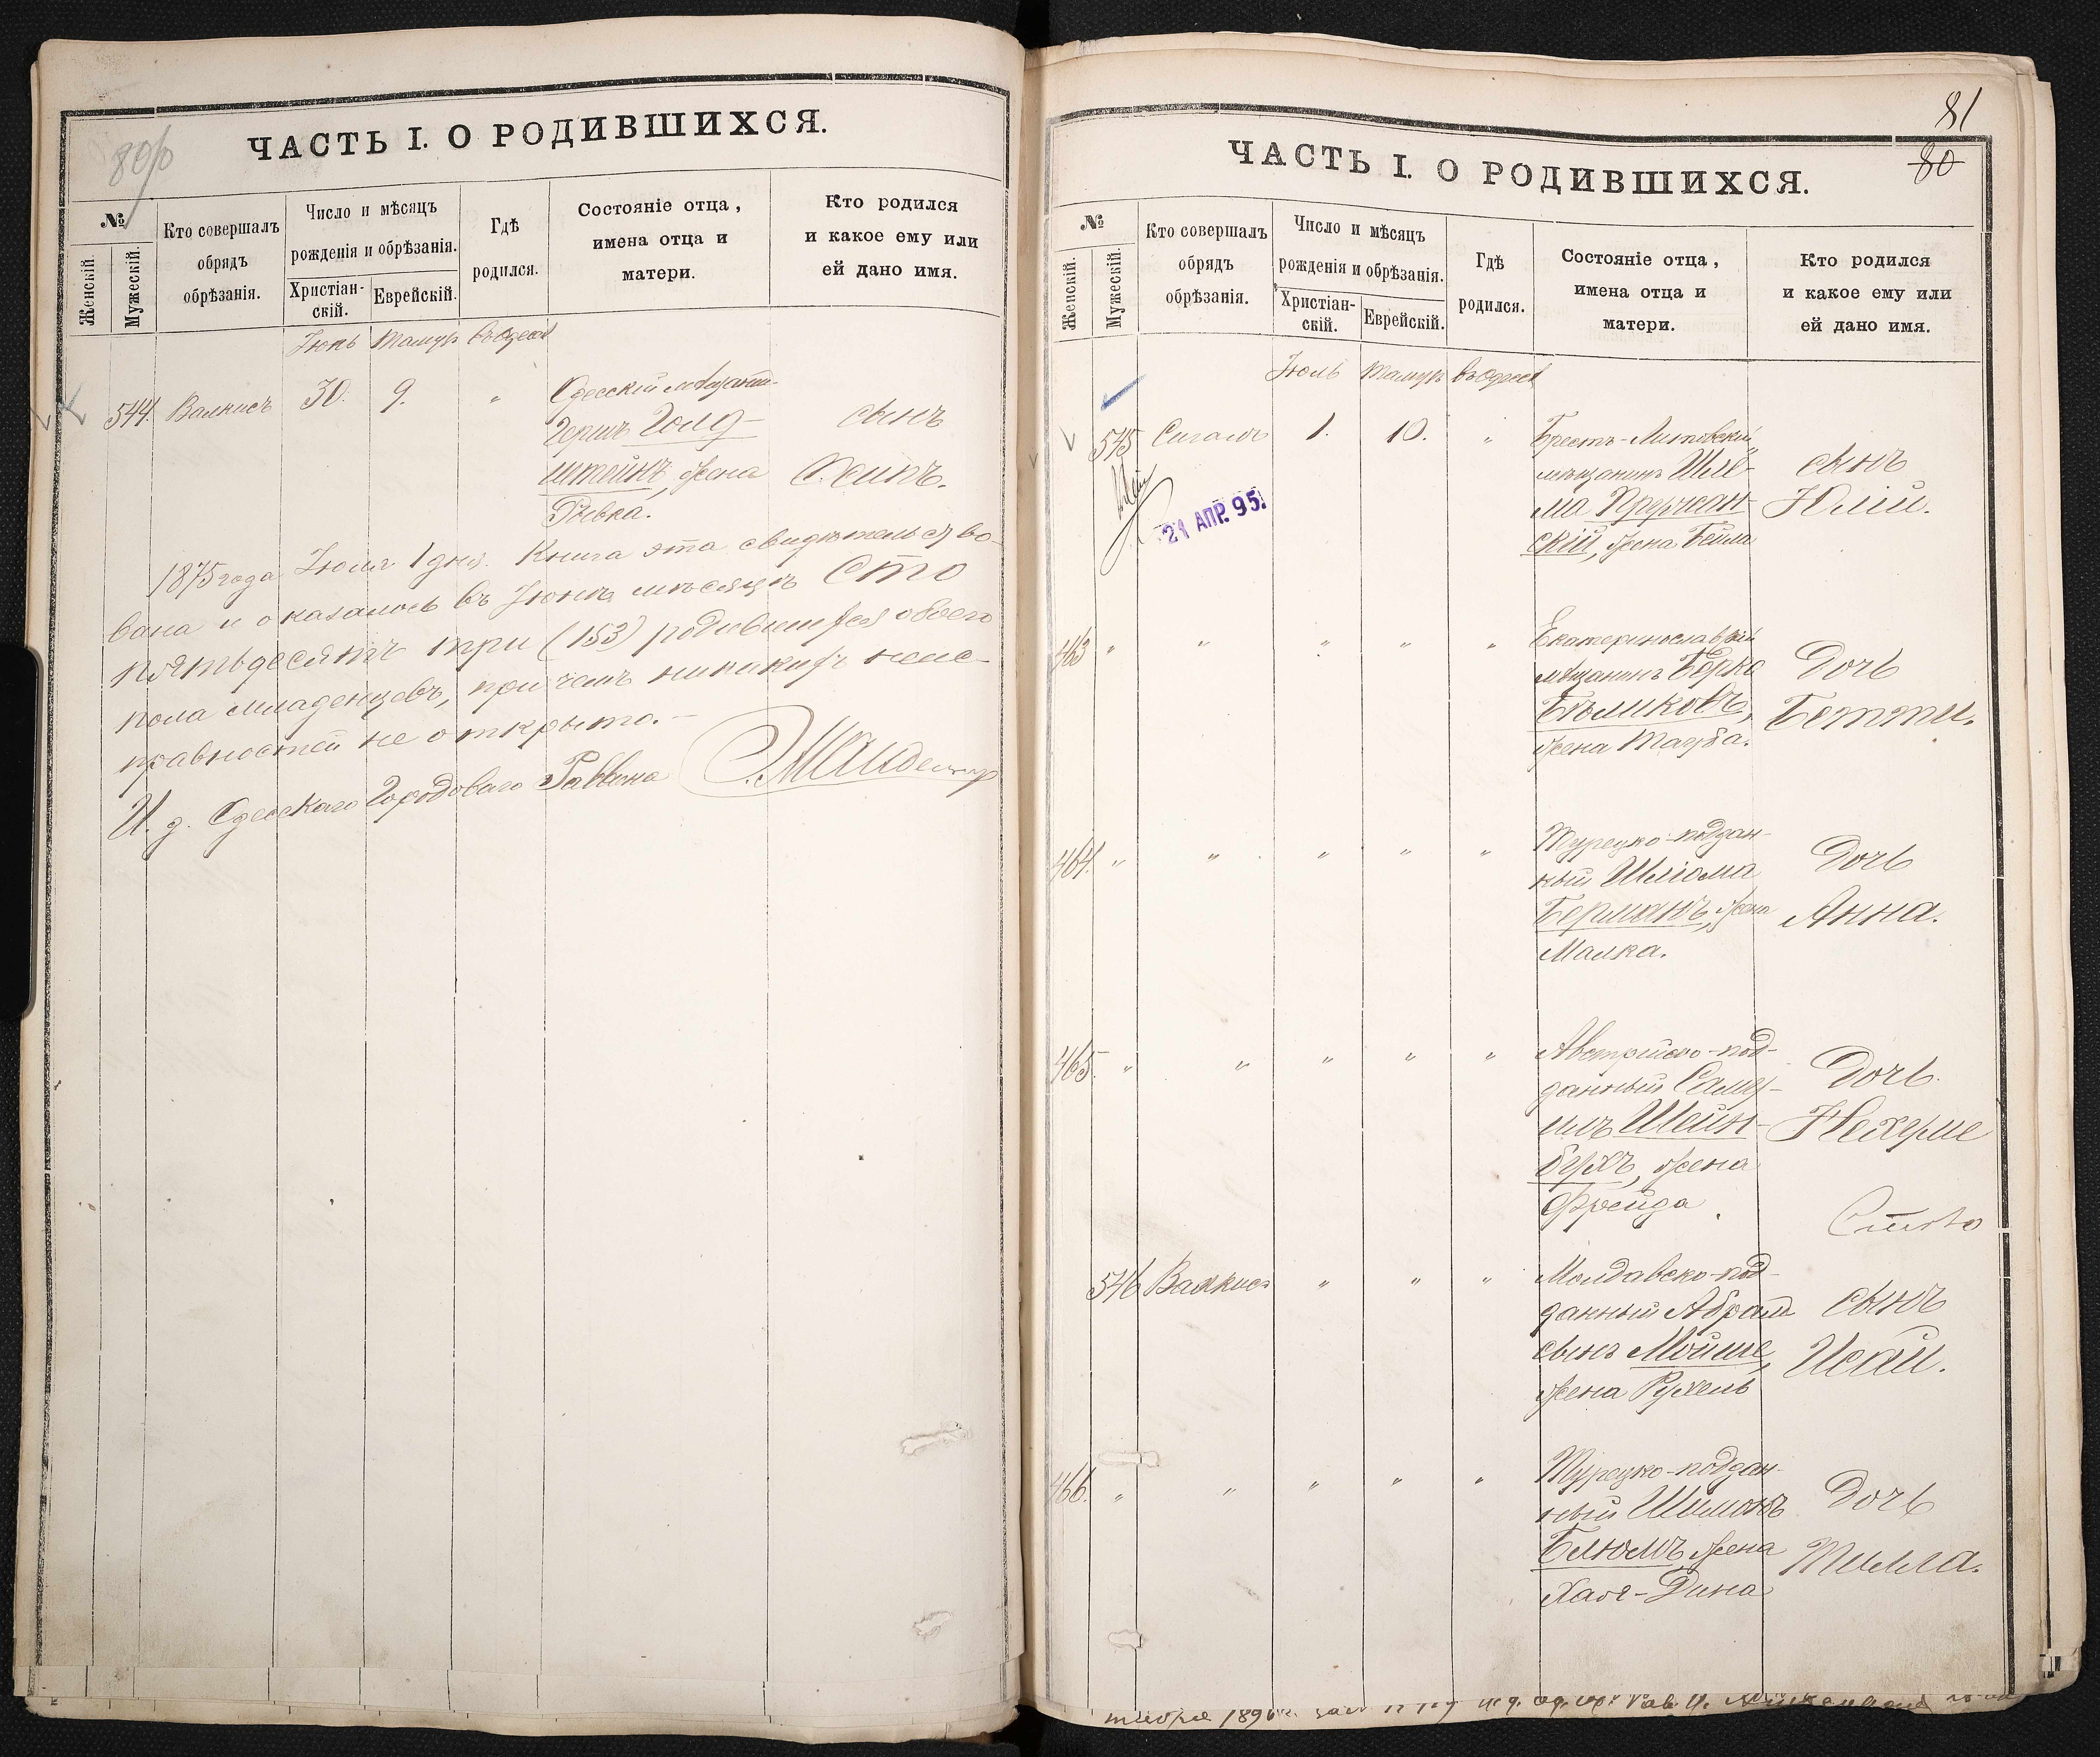 80
ЧАСТЬ I. О РОДИВШИХСЯ.
№
Женскій.
Мужескій.
Кто совершалъ
обрядъ
обрѣзанія.
Число и мѣсяцъ
рожденія и обрѣзанія.
Христіан-
скій.
Еврейскій.
Гдѣ
родился.
Состояніе отца,
имена отца и
матери.
Кто родился
и какое ему или
ей дано имя.
Іюнь Тамузъ въ Одессѣ
544. Валкисъ 30. 9. "
Одесскій мѣщанин
Гершъ Голд-
штейнъ, жена
Ривка.
сынъ
Осипъ.
1875 года Іюля 1 дня. Книга эта свидѣтельство-
вана и оказалось въ Іюнѣ мѣсяцѣ сто
пятьдесятъ три (153) родившихся обоего
пола младенцевъ, причемъ никакихъ неис-
правностей не открыто.
И. д. Одесскаго Городоваго Раввина
81
80
ЧАСТЬ I. О РОДИВШИХСЯ.
№
Женскій.
Мужескій.
Кто совершалъ
обрядъ
обрѣзанія.
Число и мѣсяцъ
рожденія и обрѣзанія.
Христіан-
скій.
Еврейскій.
Гдѣ
родился.
Состояніе отца,
имена отца и
матери.
Кто родился
и какое ему или
ей дано имя.
Іюль Тамузъ въ Одессѣ
545 Сигалъ 1. 10. "
21 АПР. 95.
Брестъ-Литовскій
мѣщанинъ Шлё-
ма Пружан-
скій, жена Бейла
сынъ
Юлій.
463 " " " " "
Екатеринославскій
мѣщанинъ Берко
Бѣликовъ,
жена Тауба.
Дочь
Бетти.
464. " " " " "
Турецко-поддан-
ный Шліома
Берманъ, жена
Малка.
Дочь
Анна.
465. " " " " "
Австрійско-под-
данный Саму-
илъ Шейн-
бухъ, жена
Фрейда
Дочь
Нехуме
546 Валкисъ " " "
Молдавско-под-
данный Абрамъ
сынъ Мойше,
жена Рухель
сынъ
Исай.
466. " " " " "
Турецко-поддан-
ный Шимонъ
Блюмъ, жена
Хая-Дина
Дочь
Тилла.